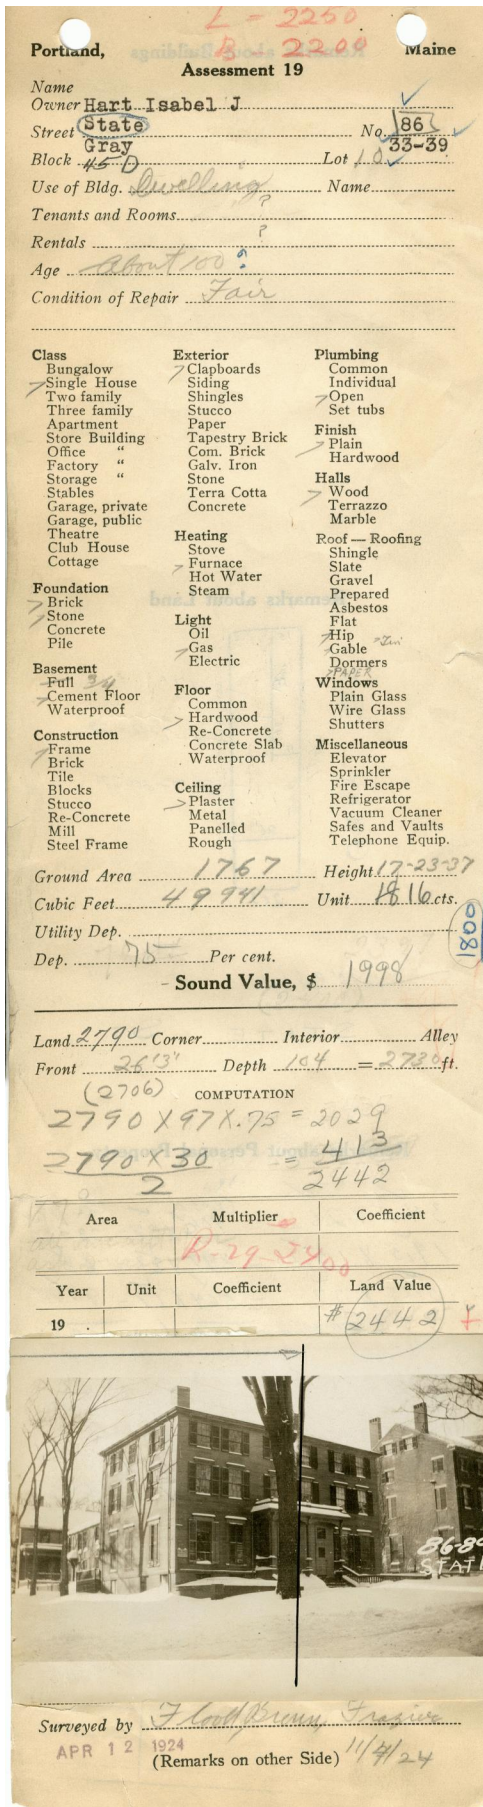 L - 2250
B - 2200
Portland, Maine
Assessment 19
Name
Owner Hart Isabel J
Street State No. 86
Gray 33-39
Block 45 D Lot 10
Use of Bldg. Dwelling Name
Tenants and Rooms ?
Rentals ?
Age About 100 ?
Condition of Repair Fair
Class
Bungalow
Single House
Two family
Three family
Apartment
Store Building
Office "
Factory "
Storage "
Stables
Garage, private
Garage, public
Theatre
Club House
Cottage
Foundation
Brick
Stone
Concrete
Pile
Basement
Full 3/4
Cement Floor
Waterproof
Construction
Frame
Brick
Tile
Blocks
Stucco
Re-Concrete
Mill
Steel Frame
Exterior
Clapboards
Siding
Shingles
Stucco
Paper
Tapestry Brick
Com. Brick
Galv. Iron
Stone
Terra Cotta
Concrete
Heating
Stove
Furnace
Hot Water
Steam
Light
Oil
Gas
Electric
Floor
Common
Hardwood
Re-Concrete
Concrete Slab
Waterproof
Ceiling
Plaster
Metal
Panelled
Rough
Plumbing
Common
Individual
Open
Set tubs
Finish
Plain
Hardwood
Halls
Wood
Terrazzo
Marble
Roof — Roofing
Shingle
Slate
Gravel
Prepared
Asbestos
Flat
Hip
Gable
Dormers
PAPER
Windows
Plain Glass
Wire Glass
Shutters
Miscellaneous
Elevator
Sprinkler
Fire Escape
Refrigerator
Vacuum Cleaner
Safes and Vaults
Telephone Equip.
Ground Area 1767 Height 17-23-37
Cubic Feet 49941 Unit 16 cts.
Utility Dep.
1800
Dep. 75 Per cent.
Sound Value, $ 1998
Land 2790 Corner Interior Alley
Front 26'3" Depth 104 = 2730 ft.
(2706) COMPUTATION
2790 X 97 X .75 = 2029
2790 X 30 = 413
2 2442
Area Multiplier Coefficient
R-29-2400
Year Unit Coefficient Land Value
19 . $ 2442
86-8
STAT
Surveyed by Flood Frazier
APR 12 1924
(Remarks on other Side) 11/7/24